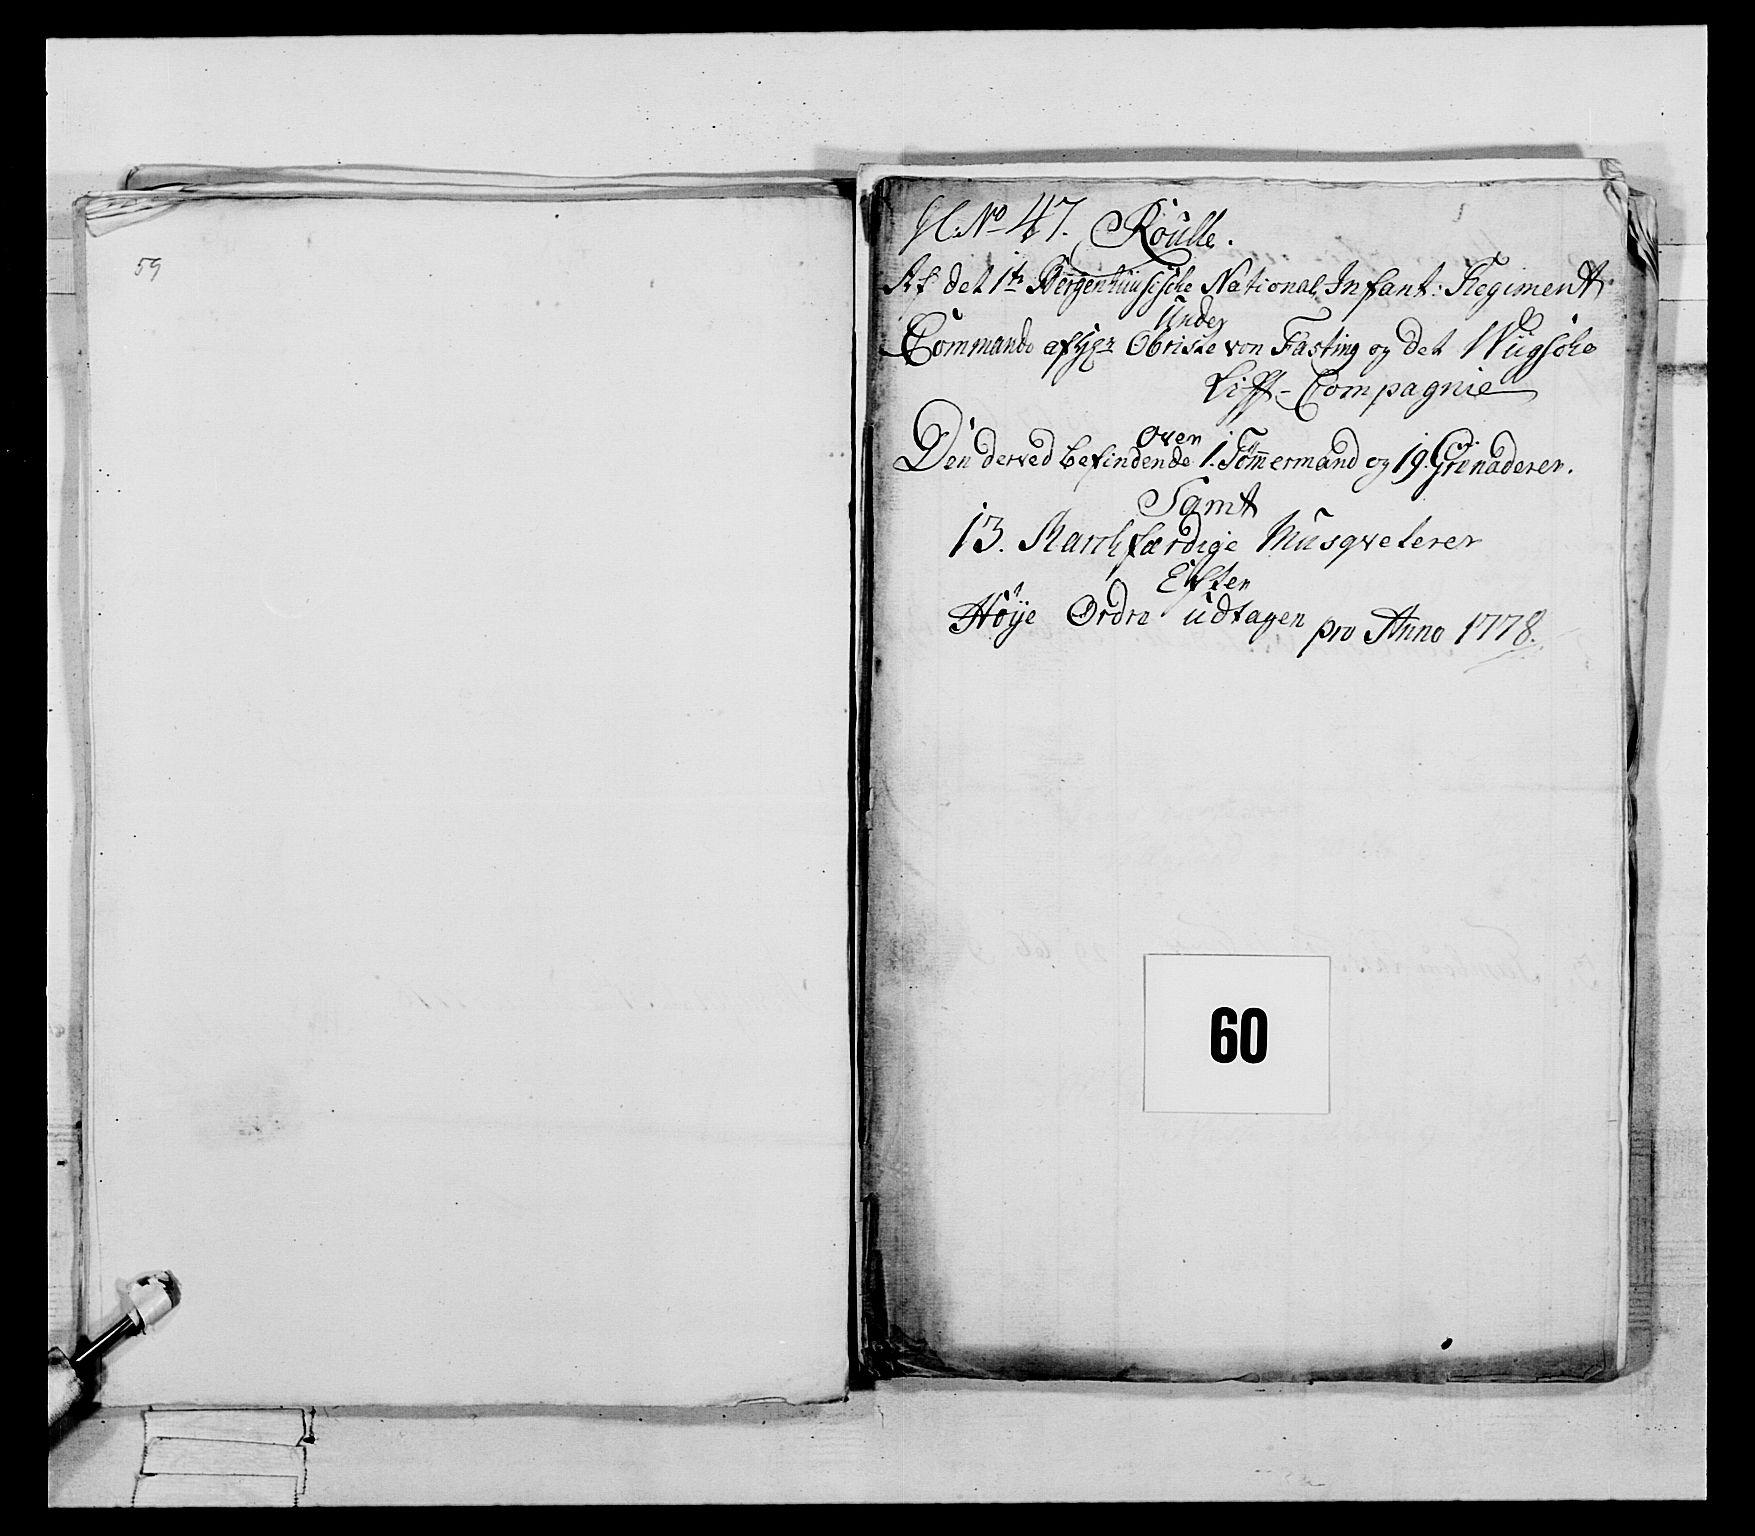 59
No 47. Roulle.
Af det 1te Bergenhuusische National Infant: Regiment
Under
Commando af Hr Obriste von Fasting og det
Liff-Compagnie
Over
Den derved befindende 1. Tømmermand og 19. Grenaderer.
Samt
13. Marchfærdige Musqveterer
Efter
Høye Ordre udtagen pro Anno 1778.
60